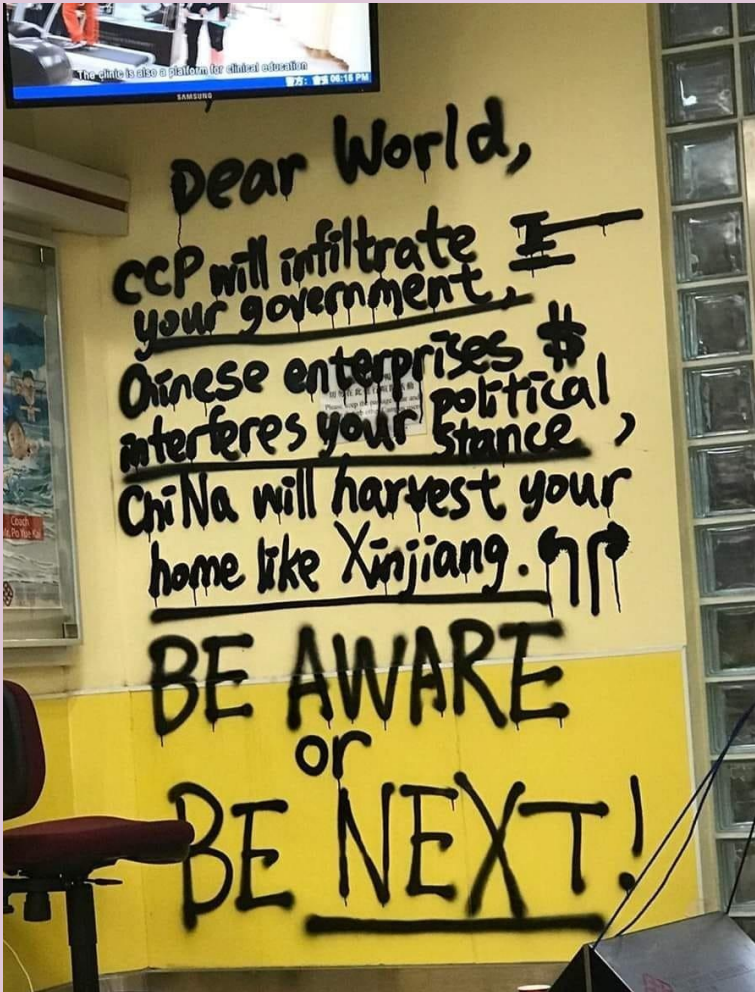 The clinic is also a platform for clinical education
06:15 PM
SAMSUNG
Dear World,
CCP will infiltrate
your government,
Chinese enterprises $
interferes your political
stance,
ChiNa will harvest your
home like Xinjiang.
BE AWARE
or
BE NEXT!
Coach
Po Yue Kai
Please keep the passage